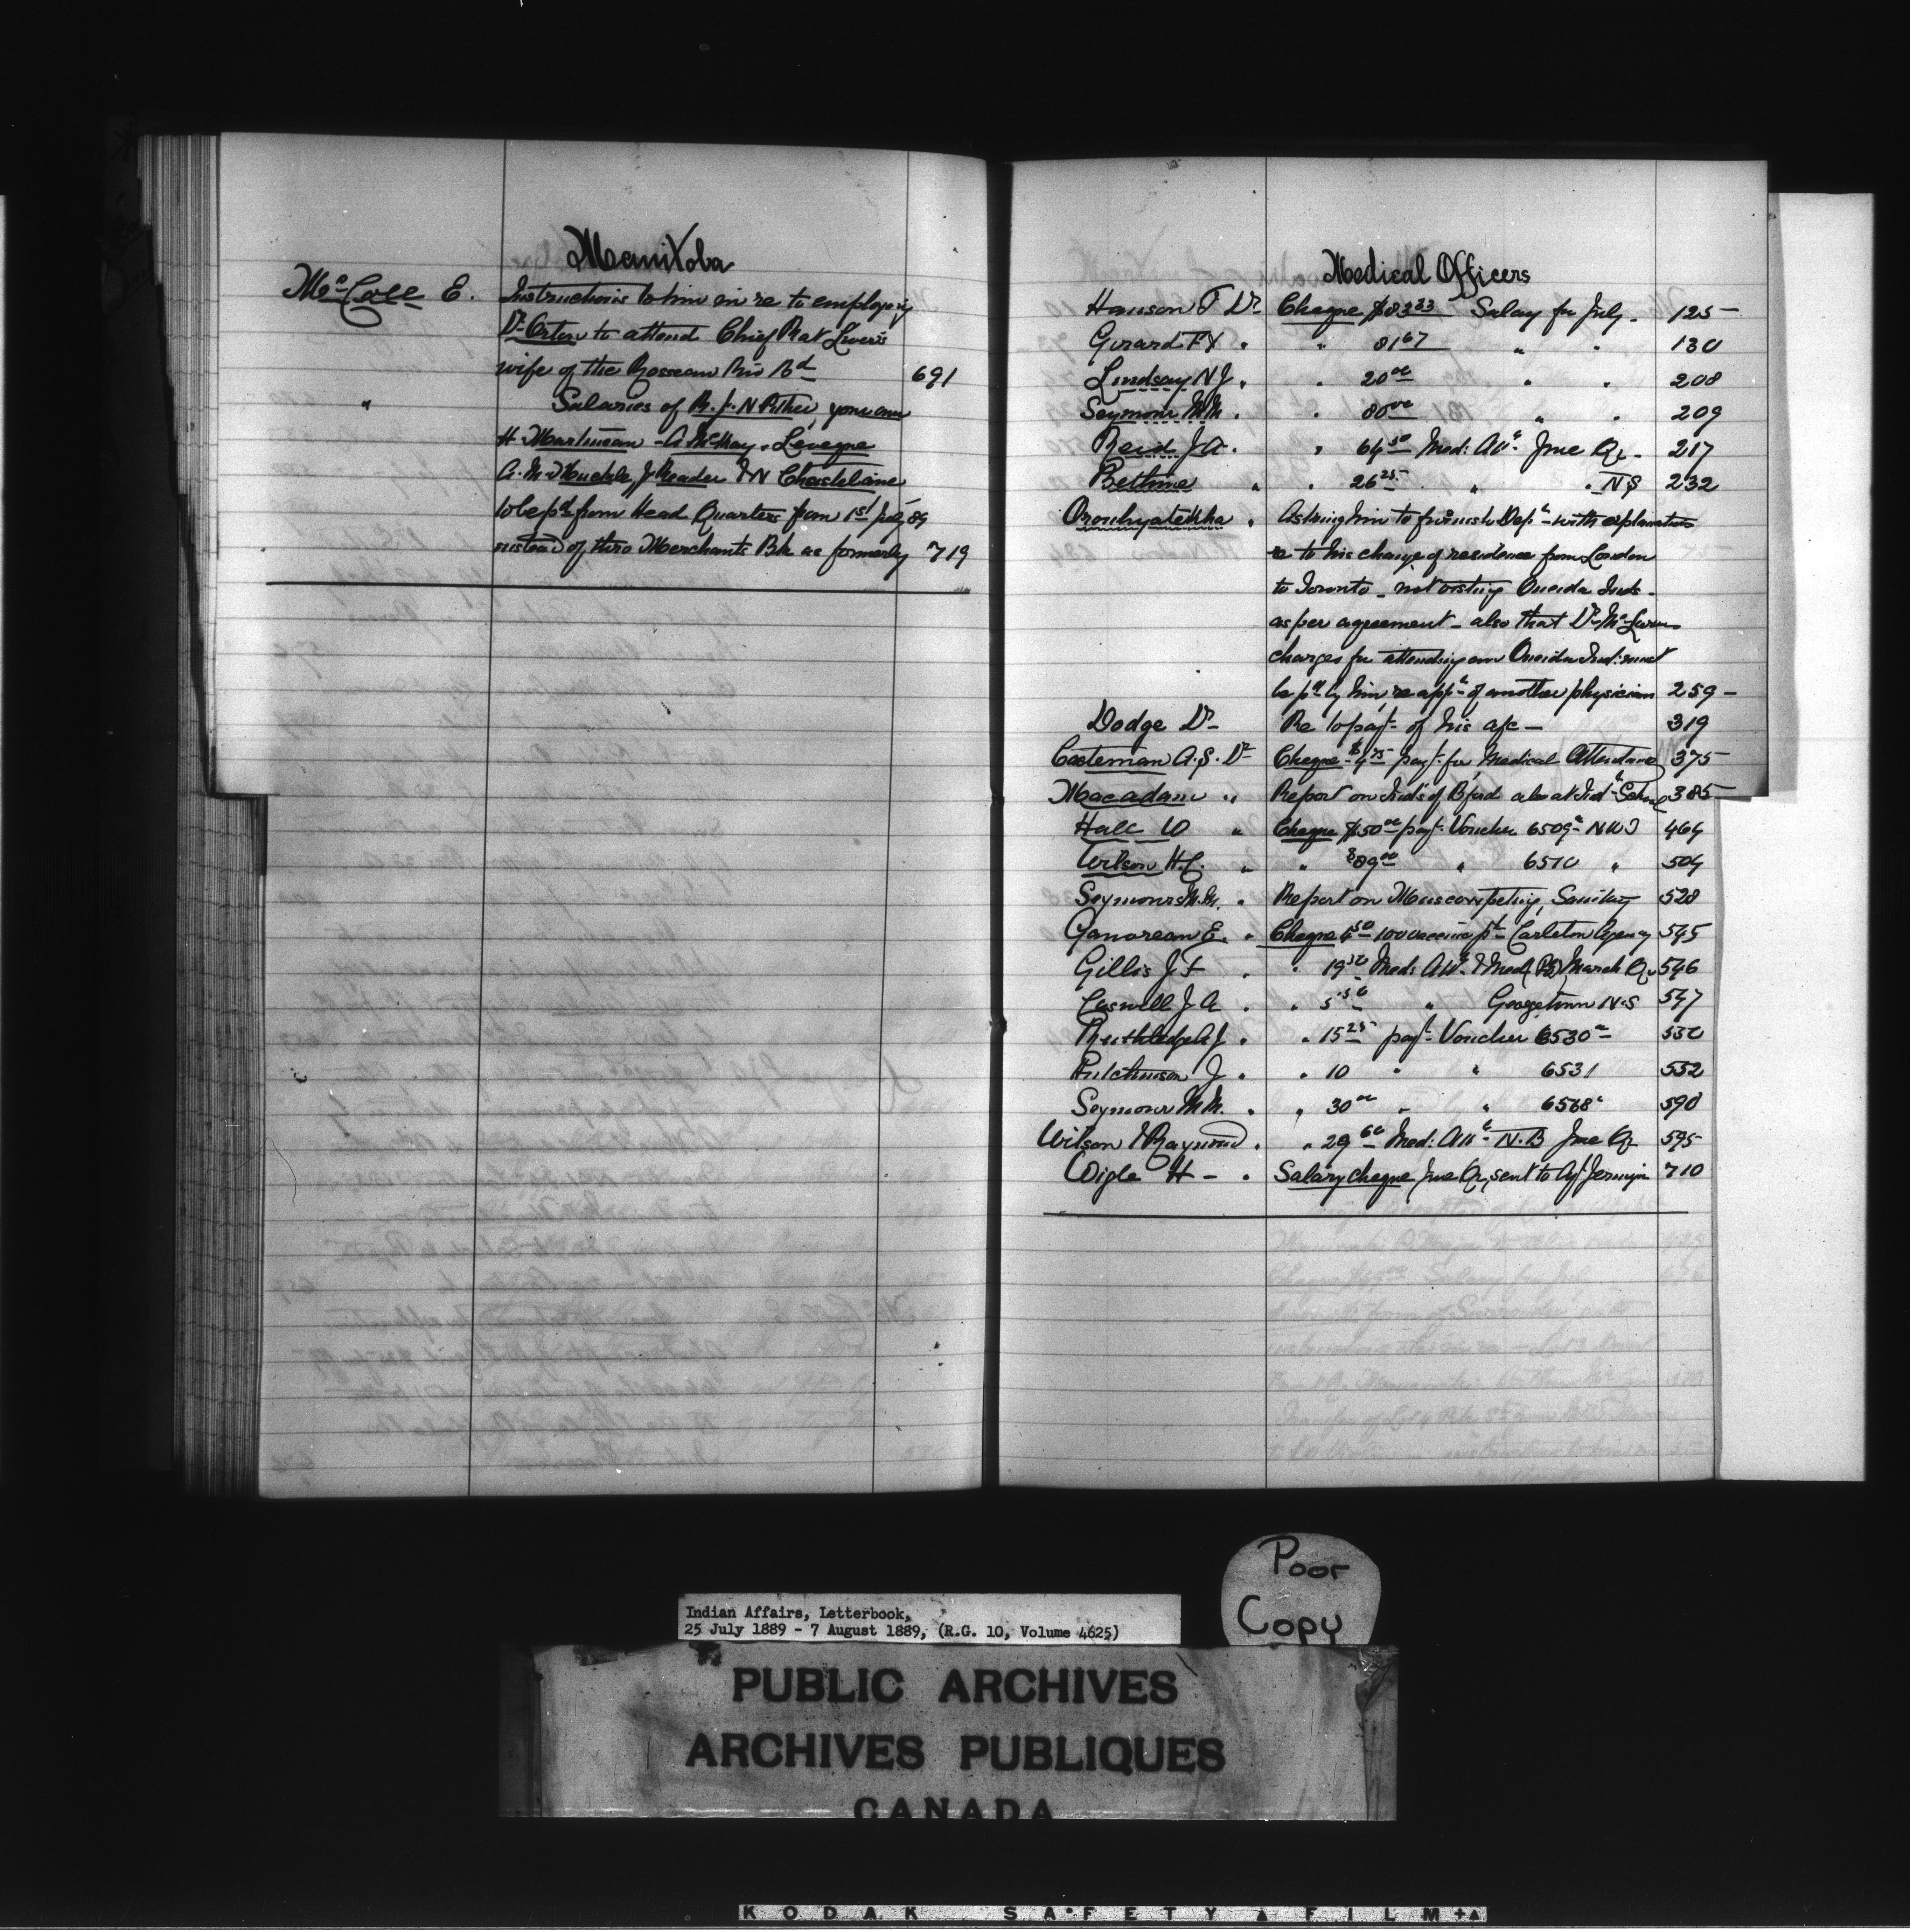 Manitoba
McColl E. Instructions to him in re to employing
Dr Orton to attend Chief Rat Liver's
wife of the Rosseau Riv Bd 691
" Salaries of R. J. N Pither, your own
H Martineau - A McKay, Leveque
to be pd from Head Quarters from 1st July 89
instead of thro Merchants Bk as formerly 719
Medical Officers
Hanson T Dr Cheque $83 33 Salary for July - 125 -
Girard F X " " 81 67 " " 130
Lindsay N J. " " 20 00 " " 208
Seymour M.M. " " 80 00 " " 209
Reid J A. " 64 50 Med: Att: June Qr - 217
Bethune " " 26 25 " " N S 232
Oronhyatekha " Asking him to furnish Dept with explanation
re to his change of residence from London
to Toronto - not visiting Oneida Inds -
as per agreement - also that Dr Mc
charges for attending an Oneida Ind: must
be pd by him, re appt of another physician 259 -
Dodge Dr - Re to payt of his a/c - 319
Casteman A. S. Dr Cheque $4 75 payt for Medical Attendance 375
Macadam " Report on Inds of Bford also at Ind School 385
Hall W " Cheque $50 00 payt Voucher 6509 N W T 464
Wilson H.C. " " $89 00 " 6510 " 504
Seymour M.M. " Report on Sanitary 528
Ganoreau E. " Cheque 4 50 100 vaccine pts Carleton Agency 545
Gillis J F " " 19 50 Med: Att & Med (PEI) March Qr 546
Caswell J A " " 5 50 " Georgetown N.S 547
Ruthledge A J. " " 15 25 payt Voucher 6530 550
Hutchinson J " " 10 " " 6531 552
Seymour M M. " " 30 00 " " 6568 590
Wilson & Raymond " " 29 60 Med: Att N.B June Qr 595
Wigle H - " Salary cheque June Qr, sent to Agt Jermyn 710
Poor
Copy
Indian Affairs, Letterbook,
25 July 1889 - 7 August 1889, (R.G. 10, Volume 4625)
PUBLIC ARCHIVES
ARCHIVES PUBLIQUES
CANADA
KODAK SAFETY FILM